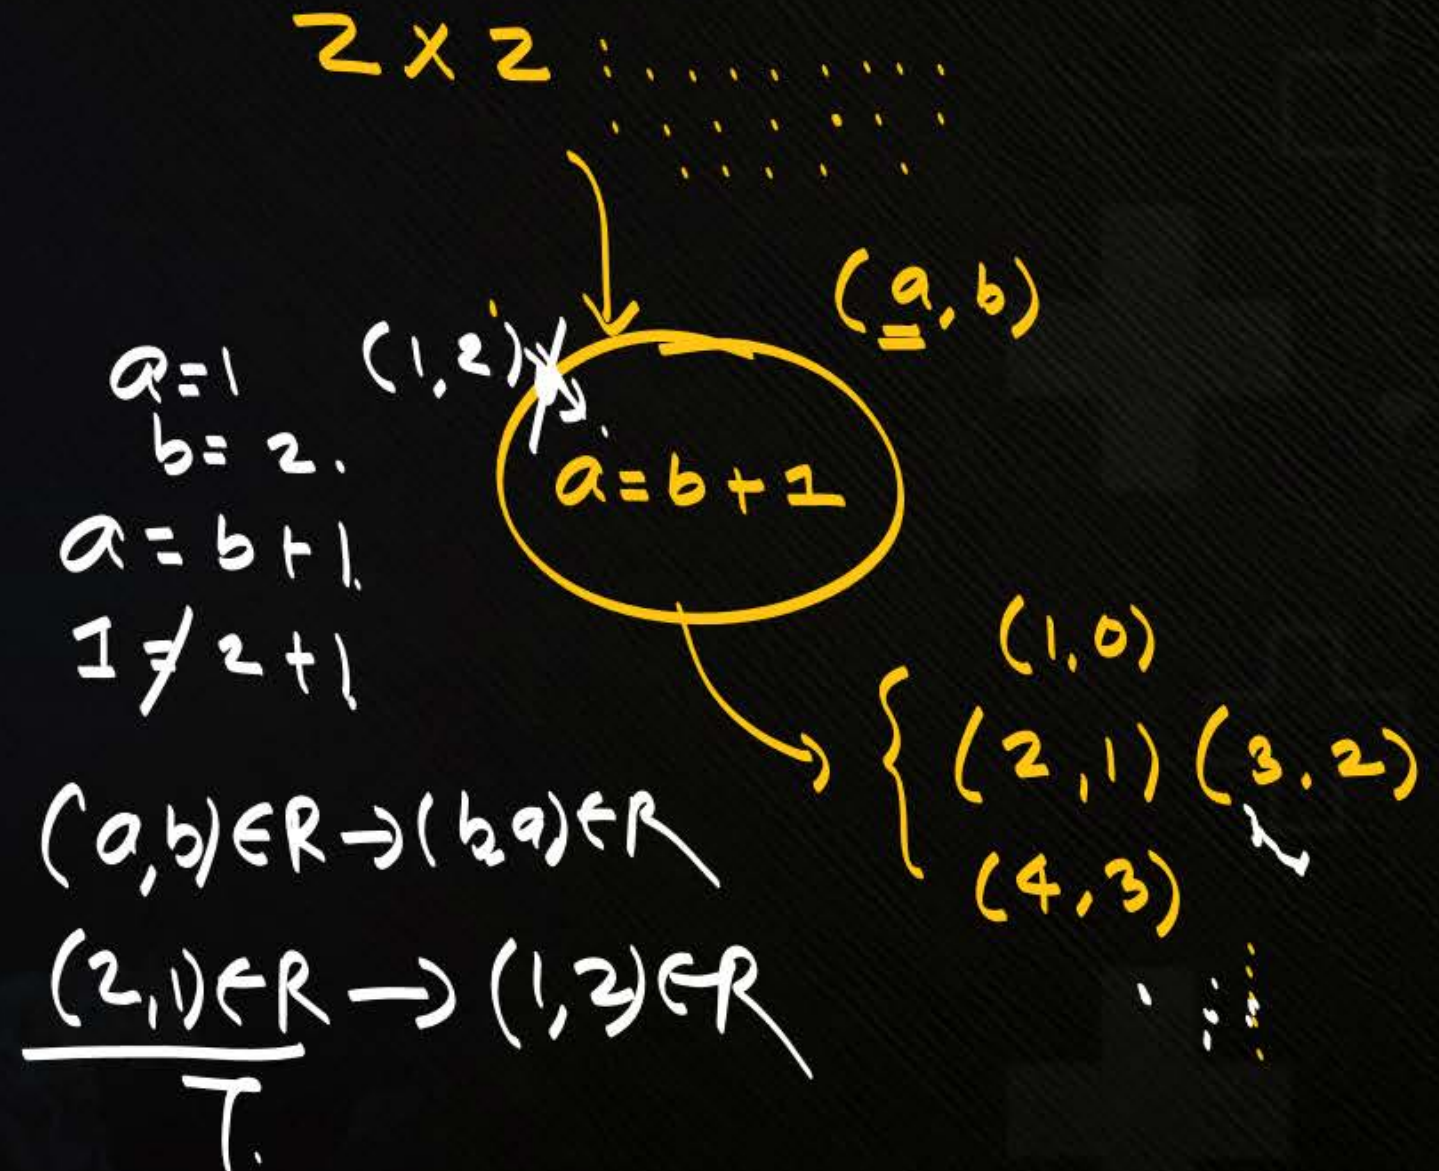 Z × Z
(a, b)
a=1 (1,2)
b= 2.
a=b+1
a = b+1.
1 ≠ 2 +1.
(1,0)
(2,1) (3,2)
(4,3)
(a,b)∈R→(b,a)∈R
(2,1)∈R → (1,2)∈R
T.